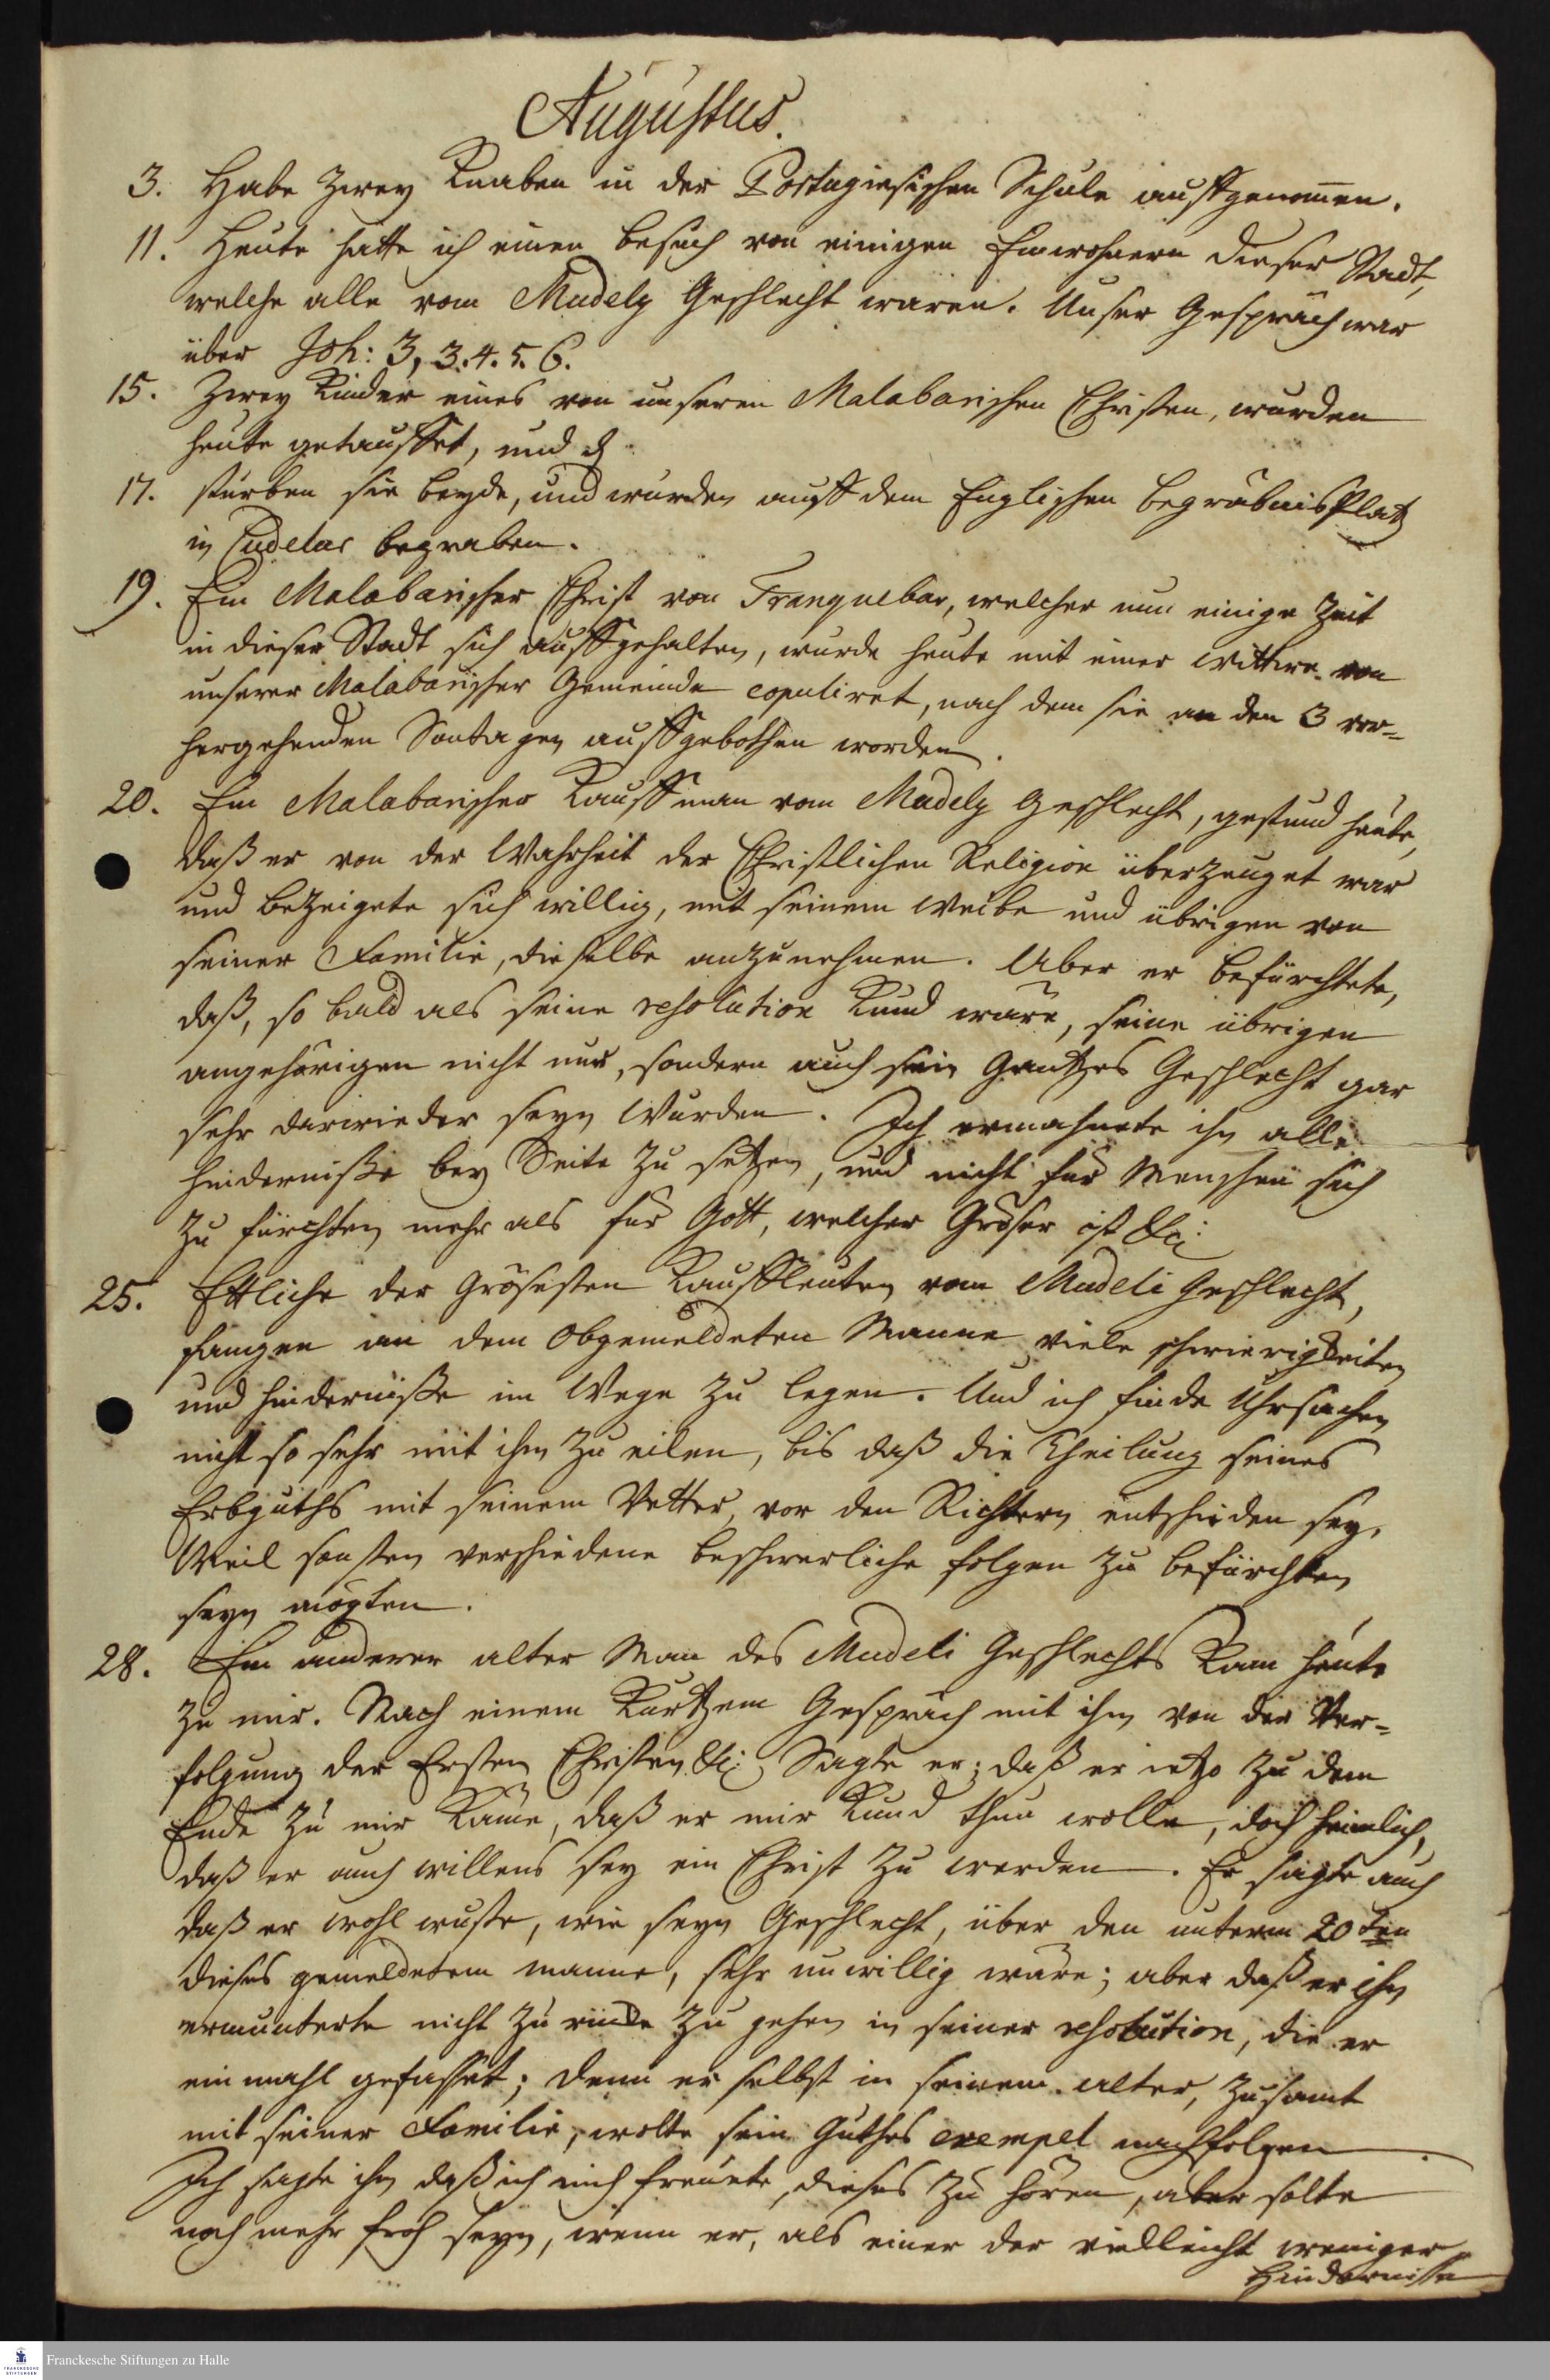 Augustus.
3. Habe zwey Knaben in der Portugiesischen Schule auffgenom̅en.
11. Heute hatte ich einen besuch von einigen Einwohnern dieser Stadt,
welche alle vom Mudely Geschlecht waren. Unser Gespräch war
über Joh: 3, 3.4.5.6.
15. Zwey Kinder eines von unseren Malabarischen Christen, wurden
heute getauffet, und d
17. sturben sie beyde, und wurden auff dem Englischen begräbnisPlatz
in Cudelur begraben.
19. Ein Malabarischer Christ von Tranquebar, welcher nun einige Zeit
in dieser Stadt sich auffgehalten, wurde heute mit einer Wittwe von
unserer Malabarischer Gemeinde copuliret, nach dem sie an den 3 vor=
hergehenden Sontagen auffgebothen worden.
20. Ein Malabarischer Kauffman vom Mudely Geschlecht, gestund heute,
daß er von der Wahrheit der Christlichen Religion überzeuget war
und bezeigete sich willig, mit seinem Weibe und übrigen von
seiner Familie, dieselbe anzunehmen. Aber er befürchtete,
daß, so bald als seine resolution Kund wäre, seine übrigen
angehörigen nicht nur, sondern auch sein Gantzes Geschlecht gar
sehr darwieder seyn wurden. Ich ermahnete ihn alle
hinderniße bey Seite zu setzen, und nicht für Menschen sich
zu fürchten mehr als für Gott, welcher Gröser ist &c:
25. Ettliche der Grösesten Kauffleuten vom Mudeli Geschlecht,
fangen an dem Obgemeldeten Manne viele schwierigkeiten
und hinderniße im Wege zu legen. Und ich finde Uhrsachen
nicht so sehr mit ihm zu eilen, bis daß die Theilung seines
Erbguths mit seinem Vetter, vor den Richtern entschieden sey,
Weil sonsten verschiedene beschwerliche folgen zu befürchten
seyn mögten.
28. Ein anderer alter Man des Mudeli Geschlechts kam heute
zu mir. Nach einem Kurtzem Gespräch mit ihm von der Ver=
folgung der Ersten Christen &c: Sagte er; daß er ietzo zu dem
Ende zu mir Käme, daß er mir Kund thun wolle, doch heimlich,
daß er auch willens sey ein Christ zu werden. Er sagte auch
daß er wohl wuste, wie seyn Geschlecht, über den unterm 20ten
dieses gemeldetem manne, sehr unwillig wäre; aber daß er ihn
ermunterte nicht zu rücke zu gehen in seiner resolution, die er
ein mahl gefasset; denn er selbst in seinem alter, zusamt
mit seiner Familie, wolte sein Guthes exempel nachfolgen.
Ich sagte ihm daß ich mich freuete, dieses zu hören, aber solte
noch mehr froh seyn, wenn er, als einer der vielleicht weniger
Hindernisse
Franckesche Stiftungen zu Halle